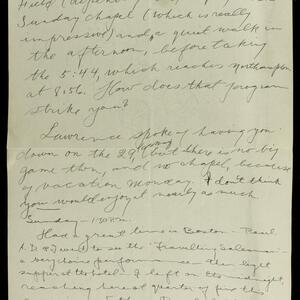 Sunday chapel (which is really
impressive) and a quiet walk in
the afternoon, before taking
the 5:44, which reaches Northampton
at 8:56. How does that program
strike you?
Lawrence spoke of having you
down on the 29, but there is no big
game then, and no chapel, because
of vacation Monday. I don't think
you would enjoy it nearly as much.
Sunday -
Had a great time in Boston. Paul
A.D. & I went to see the "Travelling Salesman"
a very performance then light
supper at the hotel. I left on the midnight,
reaching here at quarter of five this